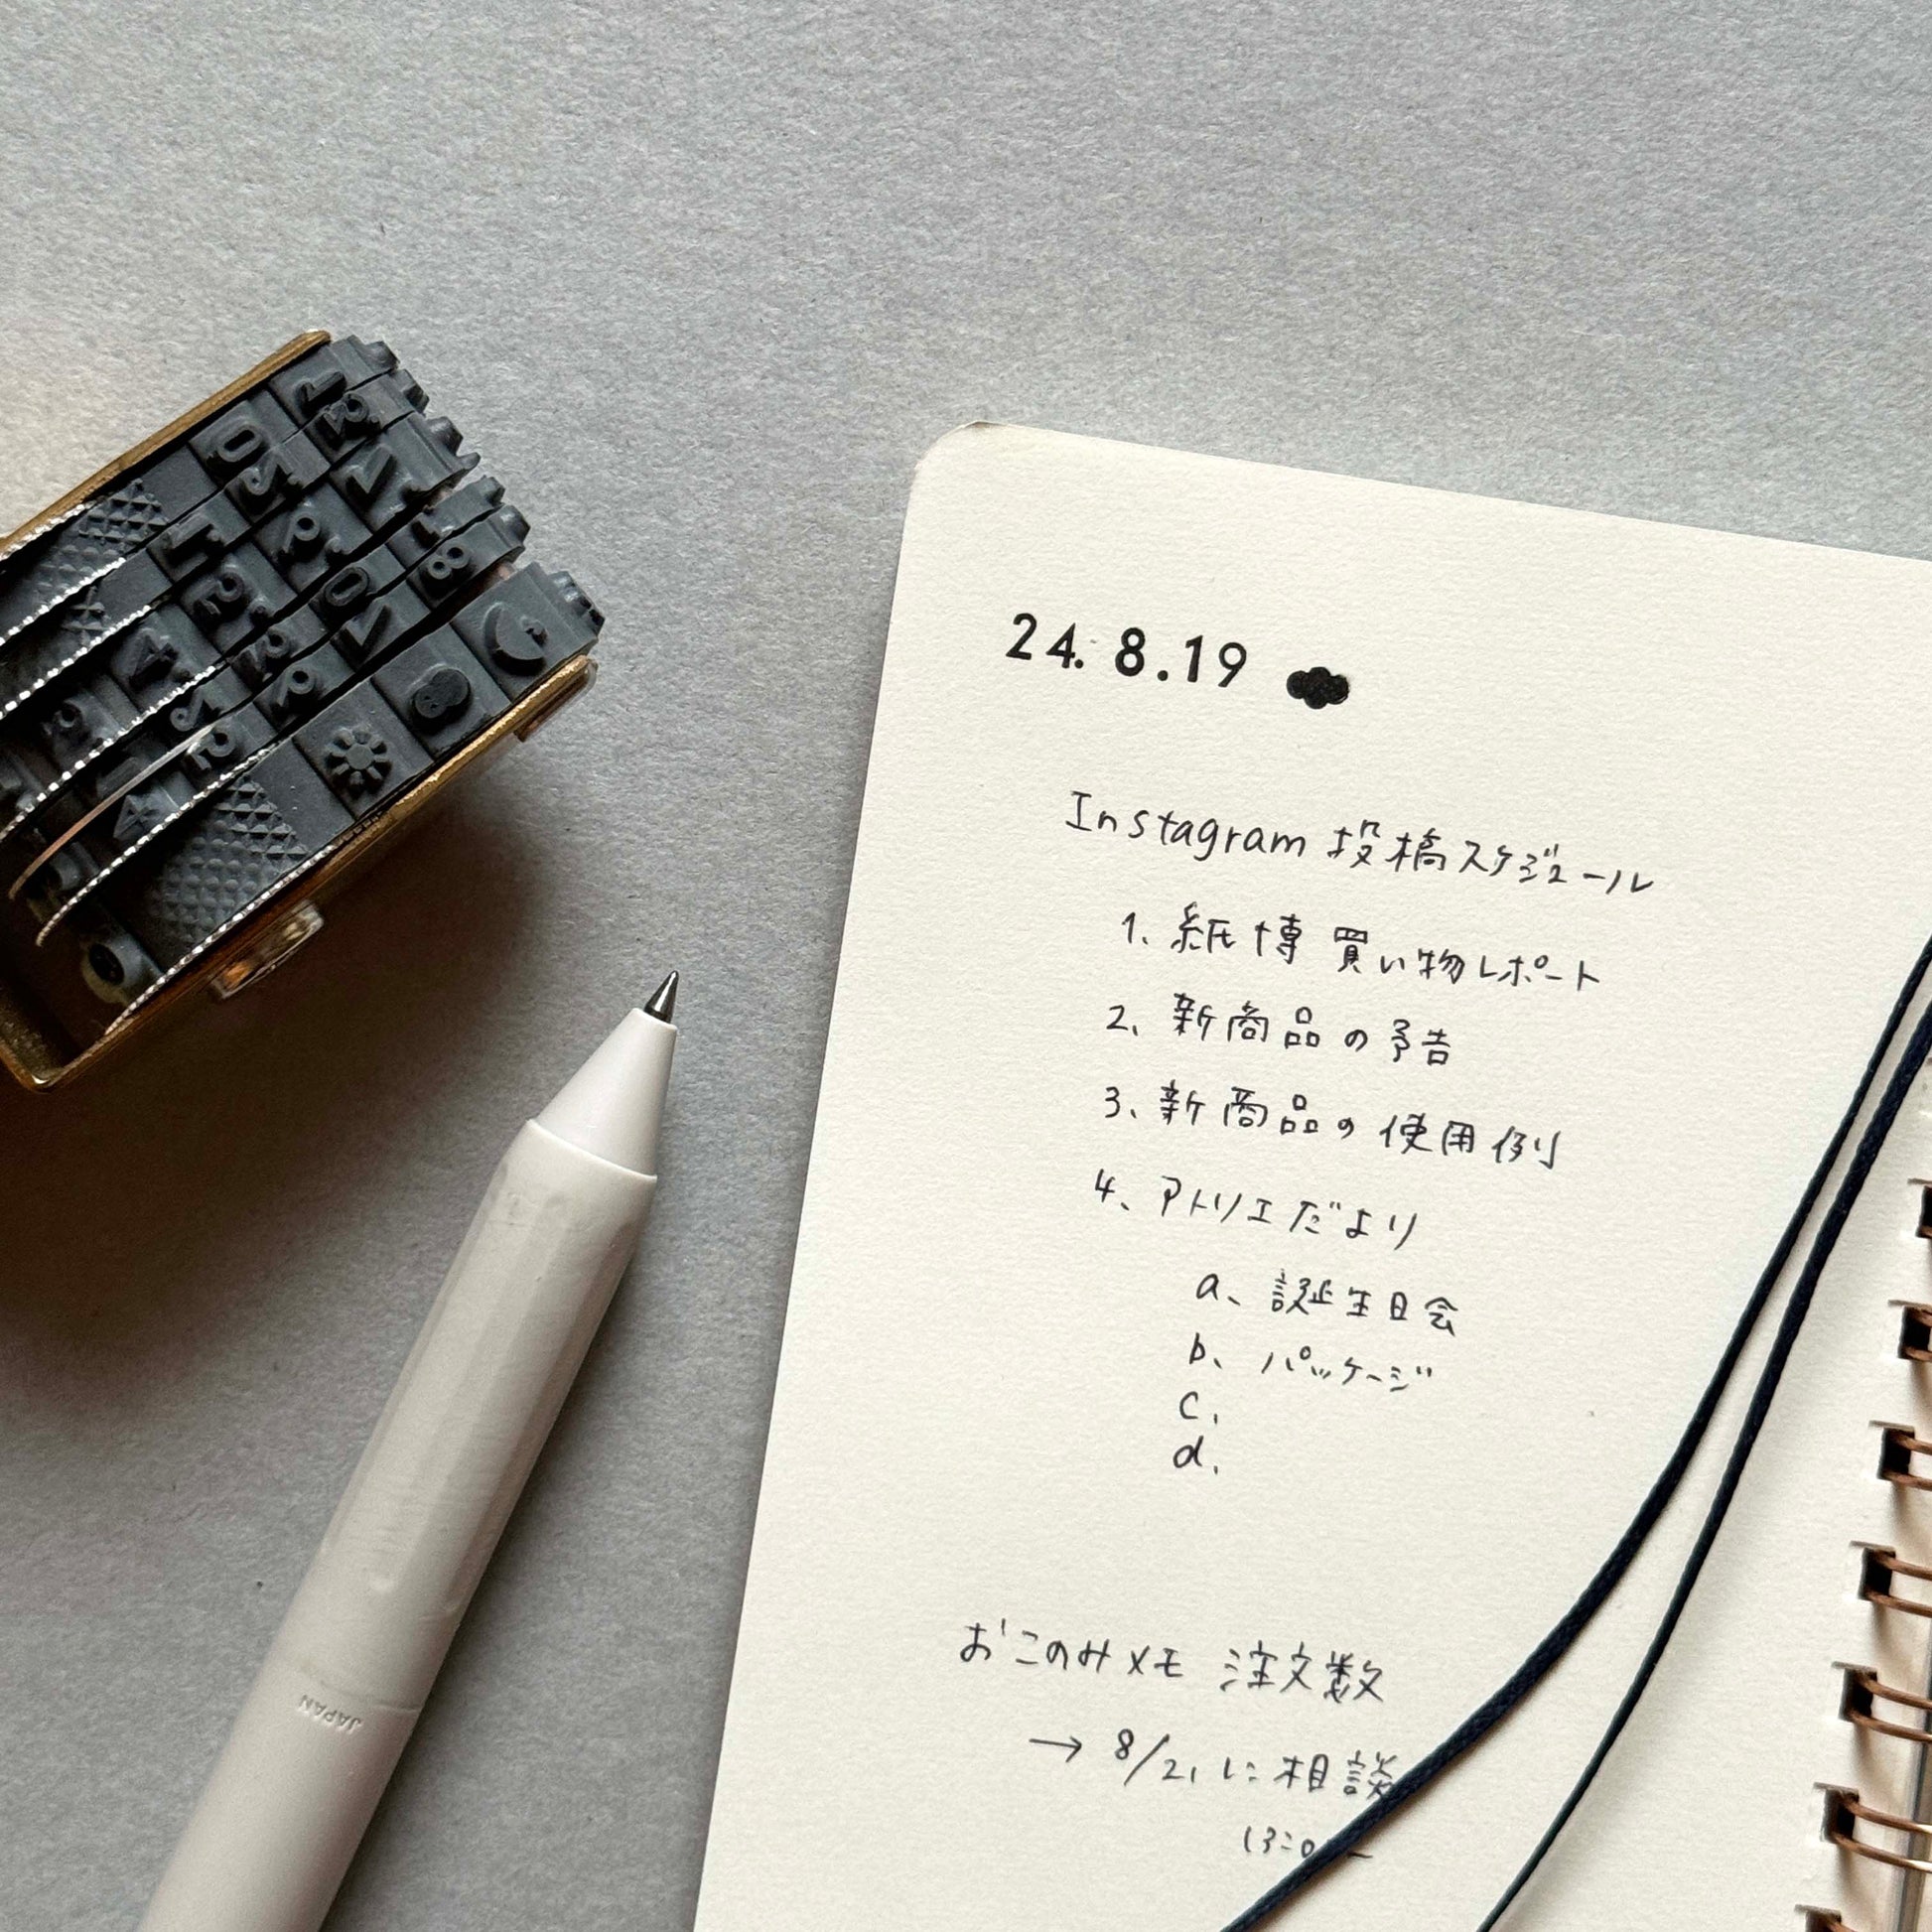 24. 8.19
Instagram 投稿スケジュール
1. 紙博 買い物レポート
2. 新商品の予告
3. 新商品の使用例
4. アトリエだより
a. 誕生日会
b. パッケージ
c.
d.
おこのみメモ 注文数
→ 8/21に相談
JAPAN